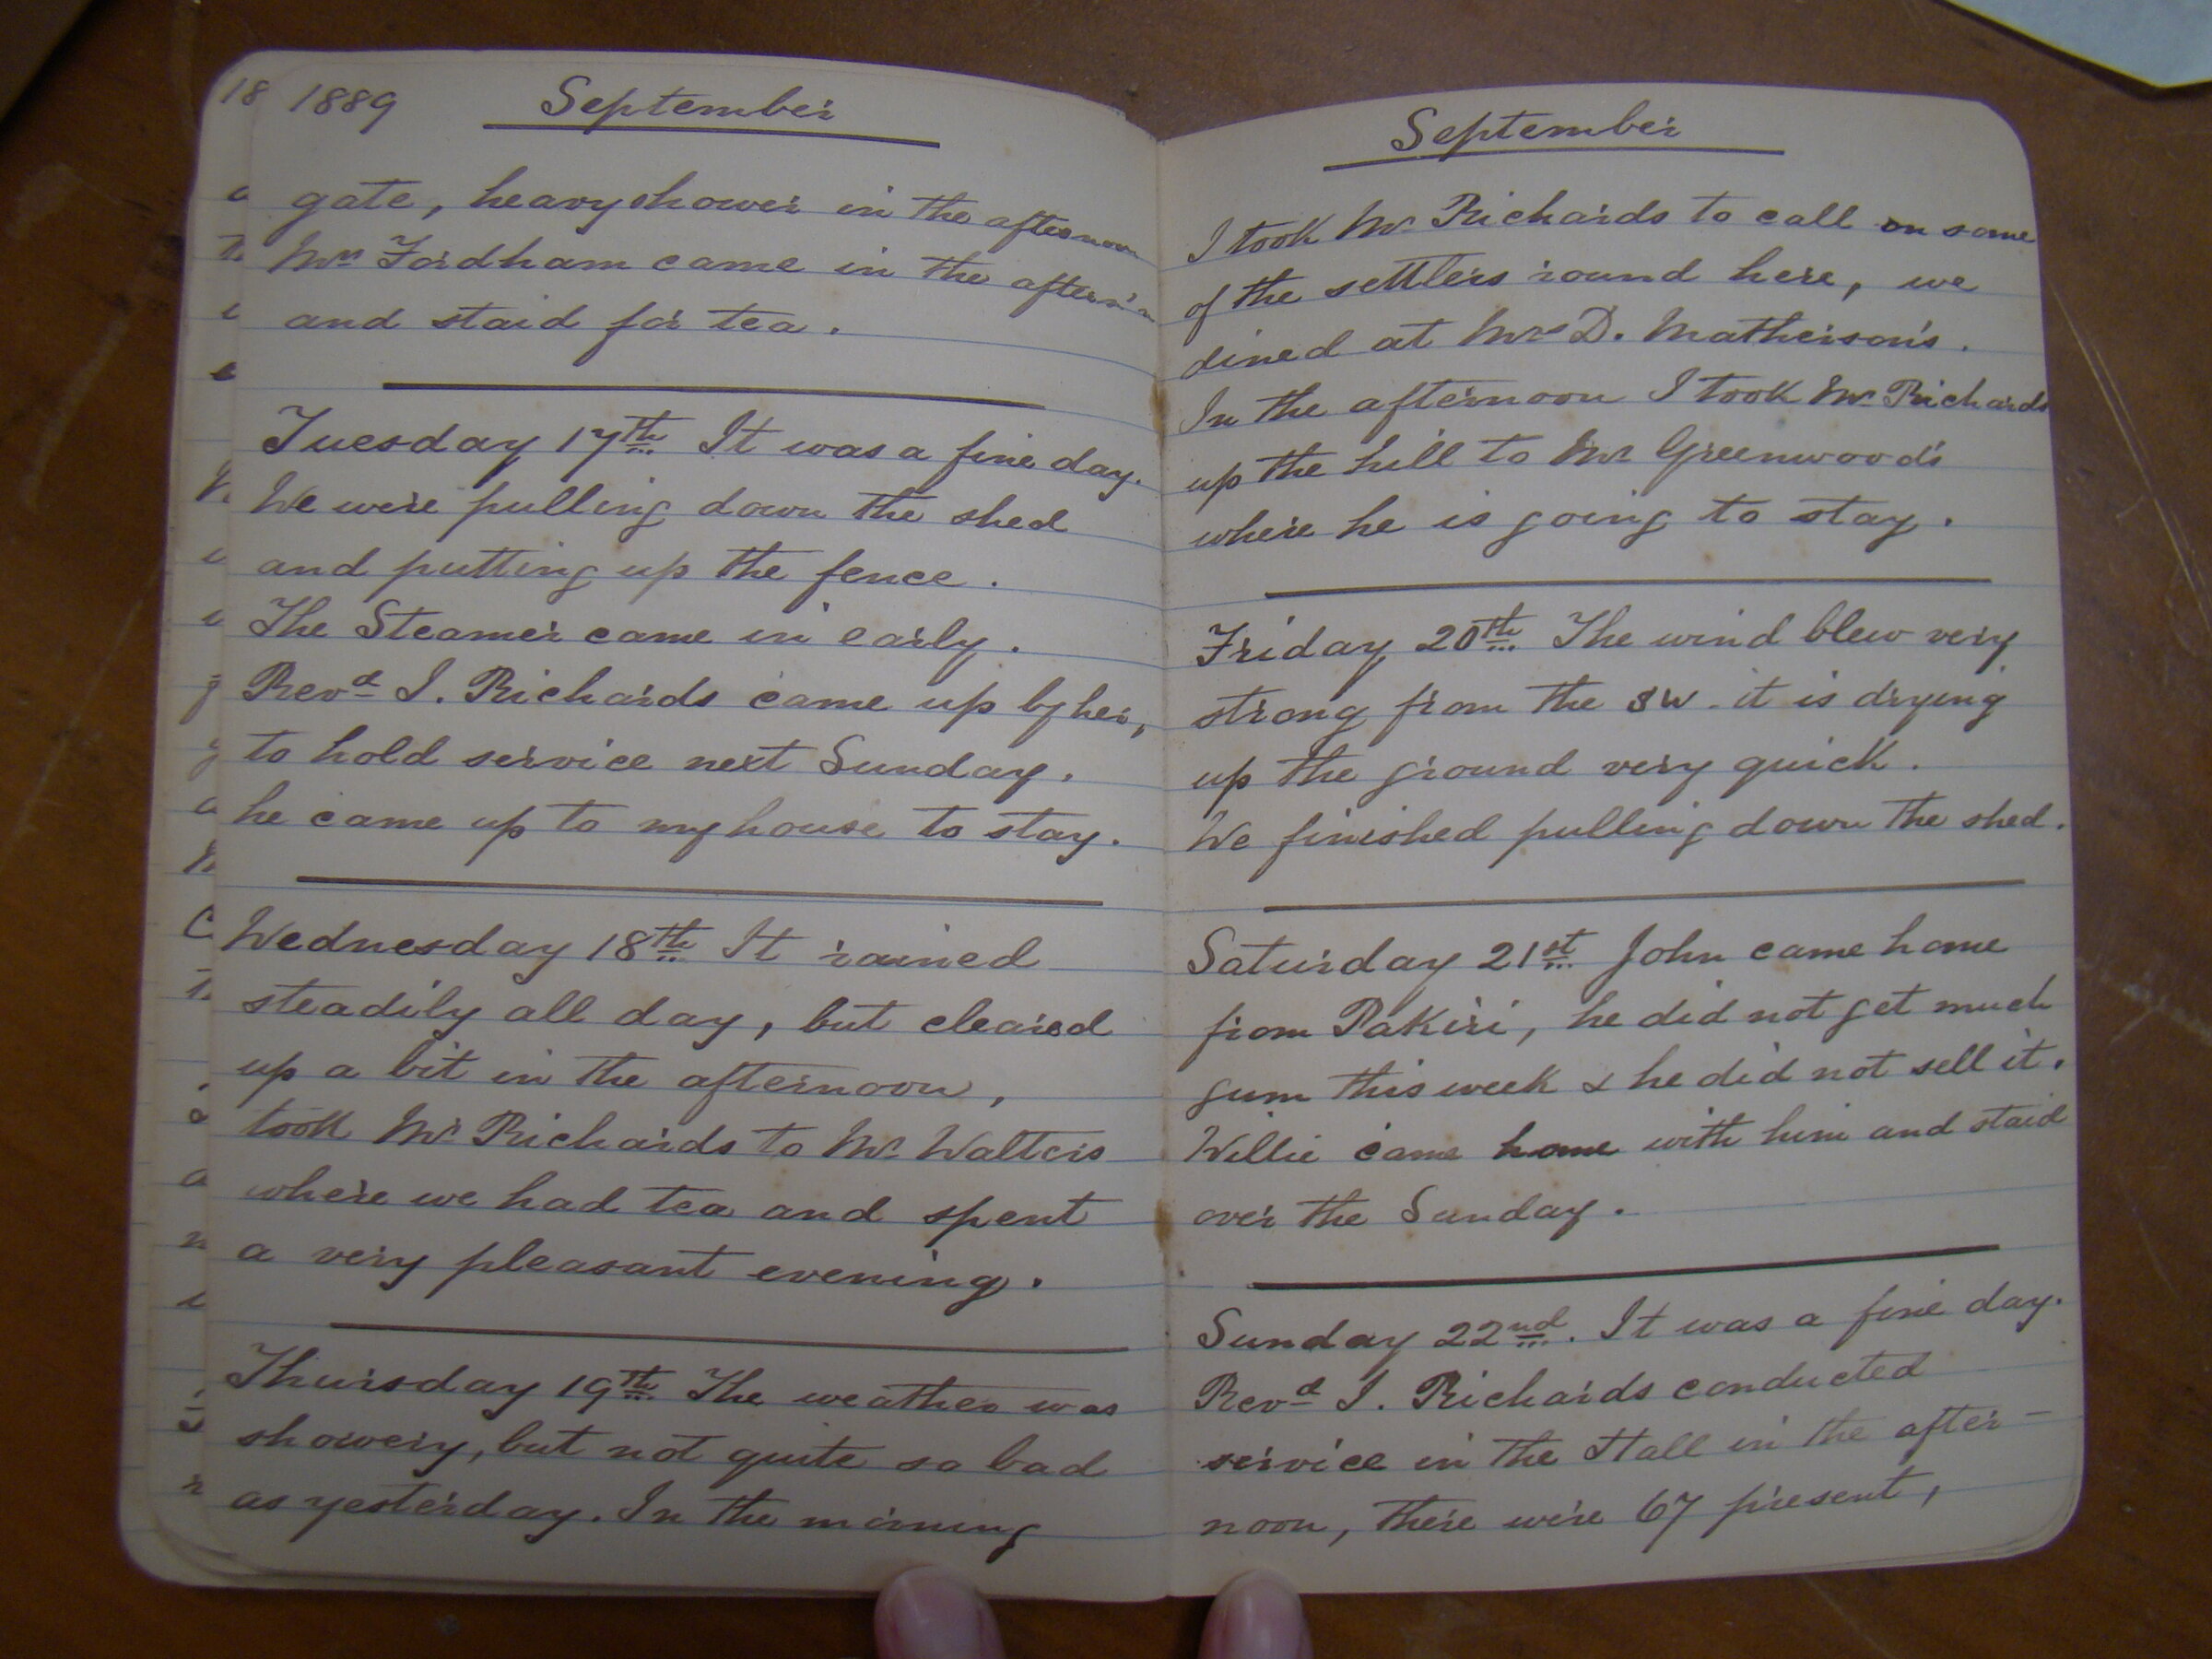 1889 September
gate, heavy shower in the afternoon
Mrs Fordham came in the aftern'n
and staid for tea.
Tuesday 17th It was a fine day.
We were pulling down the shed
and putting up the fence.
The Steamer came in early.
Revd I. Richards came up by her,
to hold service next Sunday.
he came up to my house to stay.
Wednesday 18th It rained
steadily all day, but cleared
up a bit in the afternoon,
took Mr Richards to Mr Walters
where we had tea and spent
a very pleasant evening.
Thursday 19th The weather was
showery, but not quite so bad
as yesterday. In the morning
September
I took Mr Richards to call on some
of the settlers round here, we
dined at Mrs D. Matheison's.
In the afternoon I took Mr Richards
up the hill to Mr Greenwood's
where he is going to stay.
Friday 20th The wind blew very
strong from the SW. it is drying
up the ground very quick.
We finished pulling down the shed.
Saturday 21st John came home
from Pakiri, he did not get much
gum this week & he did not sell it.
Willie came home with him and staid
over the Sunday.
Sunday 22nd. It was a fine day.
Revd I. Richards conducted
service in the Hall in the after-
noon, there were 67 present,